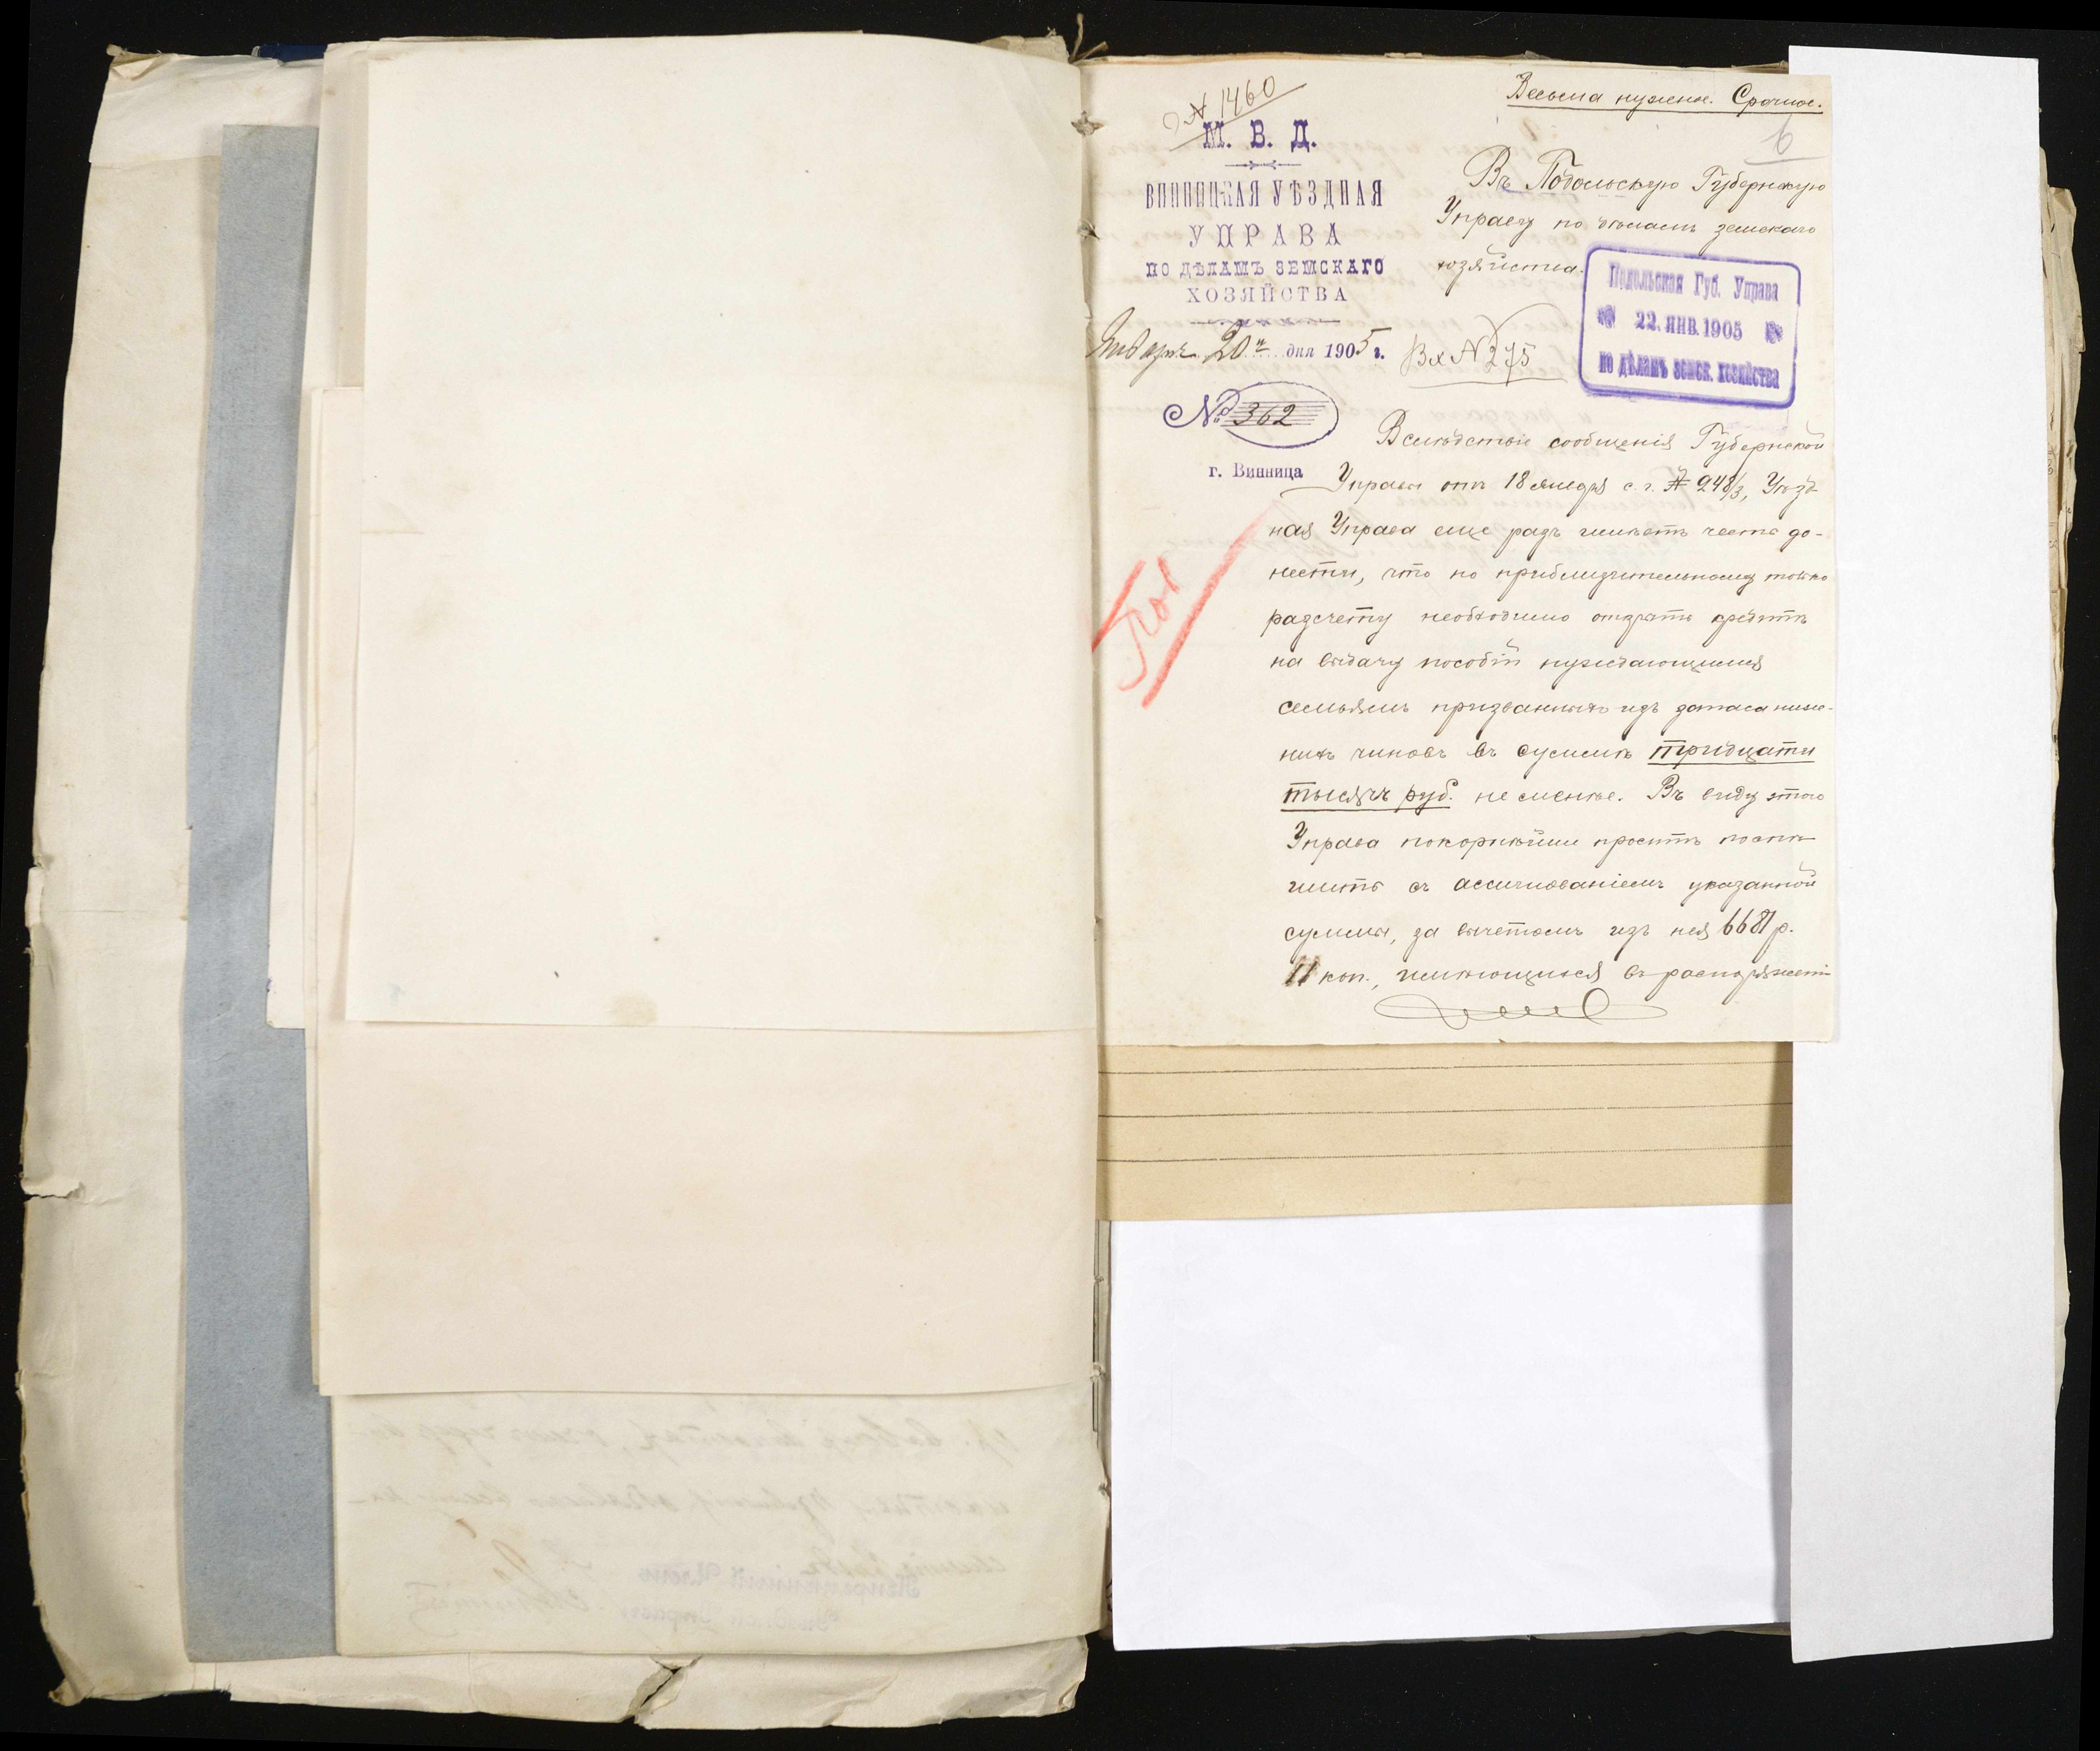 № 1460
Весьма нужное. Срочное.
6
М. В. Д.
ВИННИЦКАЯ УѢЗДНАЯ
УПРАВА
ПО ДѢЛАМЪ ЗЕМСКАГО
ХОЗЯЙСТВА
Января 20 дня 1905 г.
№ 362
г. Винница
Въ Подольскую Губернскую
Управу по дѣламъ земскаго
хозяйства.
Подольская Губ. Управа
22. ЯНВ. 1905
по дѣламъ земск. хозяйства
Вх № 275
Вслѣдствіе сообщенія Губернской
Управы отъ 18 января с. г. № 248/3, Уѣзд
ная Управа еще разъ имѣетъ честь до-
нести, что по приблизительному только
разсчету необходимо открыть кредитъ
на выдачу пособій нуждающимся
семьямъ призванныхъ изъ запаса ниж-
нихъ чиновъ въ суммѣ тридцати
тысячъ руб. не менѣе. Въ виду этого
Управа покорнѣйше проситъ поспѣ
шить съ ассигнованіемъ указанной
суммы, за вычетомъ изъ нея 6681 р.
11 коп., имѣющихся въ распоряженіи